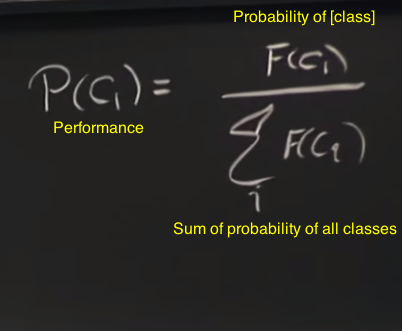 Probability of [class]
P(C₁) = F(C₁)
Performance
∑ F(C₁)
i
Sum of probability of all classes